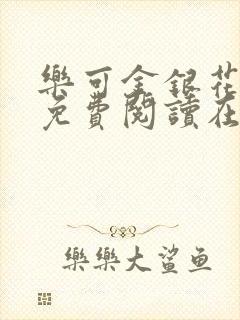 樂可金銀花
免費閱讀在
樂樂大鯊鱼